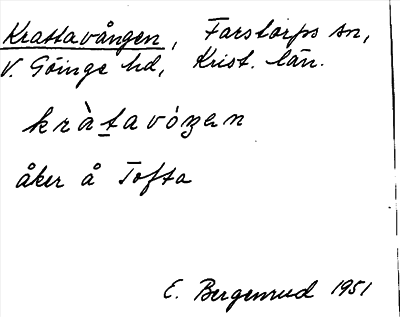 Krattavången, Farstorps sn,
V. Göinge hd, Krist. län.
kràṯavóʒen
åker å Tofta
E. Bergenrud 1951